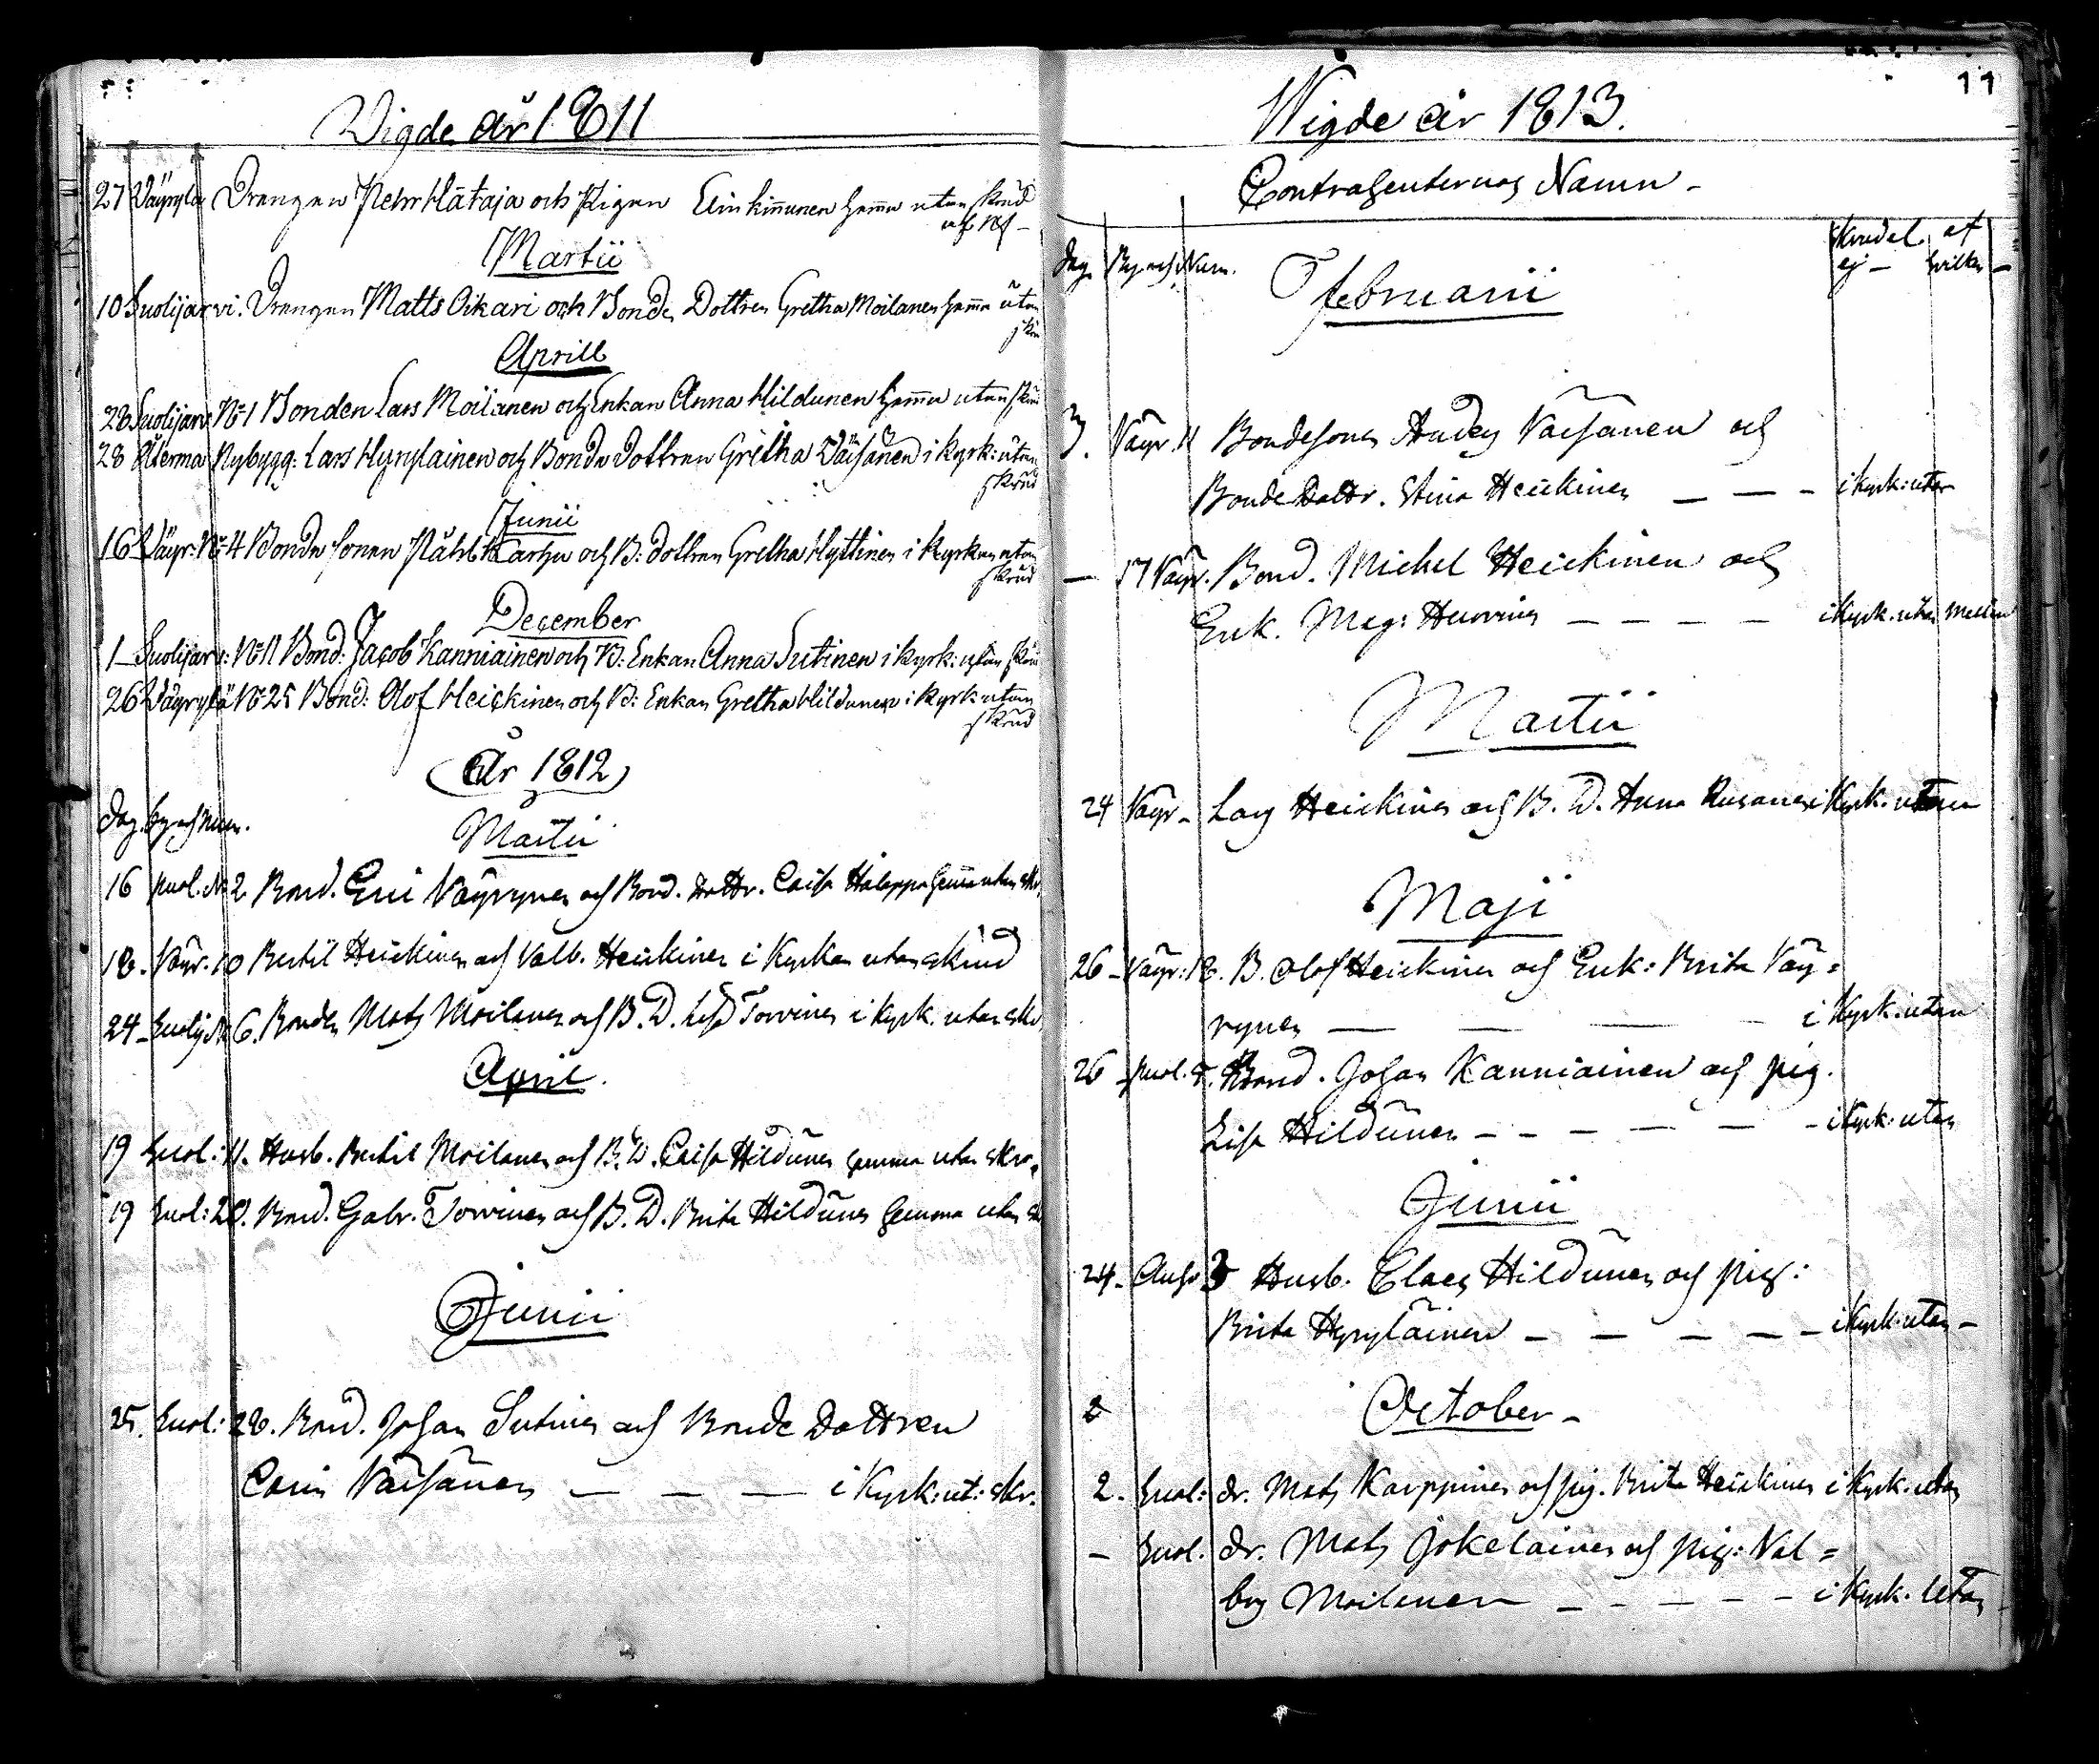 Vigde år 1811
27 Väyryla Drengen Pehr Hätaja och Pigan Elin Kinnunen hemma utan skrud
af Nf -
Martii
10 Suolijarvi. Drengen Matts Oikari och Bonde Dottren Gretha Moilanen hemma utan
skru
Aprill
28 Suolijarv: No 1 Bonden Lars Moilanen och Enkan Anna Hildunen hemma utan skru
28 Alterma Nybygg: Lars Hyrylainen och Bonde Dottren Gretha Väisänen i kyrk: utan
skrud
Junii
16 Väyr: No 4 Bonde Sonen Påhl Karhu och B: dottren Gretha Hyttinen i Kyrkan utan
skrud
December
1 Suolijarv: No 11 Bond: Jacob Kanniainen och B: Enkan Anna Sutinen i kyrk: utan skru
26 Väyrylä No 25 Bond: Olof Heickinen och B: Enkan Gretha Hildunen i kyrk utan
skrud
År 1812
Dag. by och Num.
Martii
16 Suol. No 2. Bond. Eric Väyrynen och Bond. dottr. Caisa Halappa hemma utan skr.
18. Väyr. 10 Bertil Heickinen och Valb. Heickinen i Kyrkan utan skrud
24 Suolij. No 6. Bonden Mats Moilanen och B. D. Lisa Torvinen i kyrk. utan skr
April.
19 Suol: 11. Husb. Bertil Moilanen och B. D. Caisa Hildunen hemma utan skr.
19 Suol: 20. Bond. Gabr. Torvinen och B. D. Brita Hildunen hemma utan sk
Junii
25. Suol: 28. Bond. Johan Sutinen och Bonde Dottren
Carin Väisänen — — — i Kyrk: ut: skr.
11
Wigde år 1813.
Contrahenternas Namn -
Dag. By och Num. skrud el. ej - af hvilken -
Februarii
3. Väyr. 11 Bondesonen Anders Väisänen och
Bonde Dottr. Stina Heickinen — — - i kyrk: utan
— 17 Väyr. Bond. Michel Heickinen och
Enk. Mag: Hurvinen — — — — i Kyrk. utan
Martii
24 Väyr - Lars Heickinen och B. D. Anna Rusanen i Kyrk. utan
Maji
26 - Väyr: 18. B. Olof Heickinen och Enk: Brita Väy=
rynen — — — - i Kyrk: utan
26 Suol. 7. Bond. Johan Kanniainen och pig.
Lisa Hildunen - - - - - - i Kyrk: utan
Junii
24 - 3 Husb. Claes Hildunen och pig:
Brita Hyryläinen — — — — - i Kyrk: utan -
October -
2. Suol: dr. Mats Karppinen och pig. Brita Heickinen i Kyrk. utan
- Suol. dr. Mats Jokelainen och pig: Val=
borg Moilanen — - - - - i Kyrk. utan